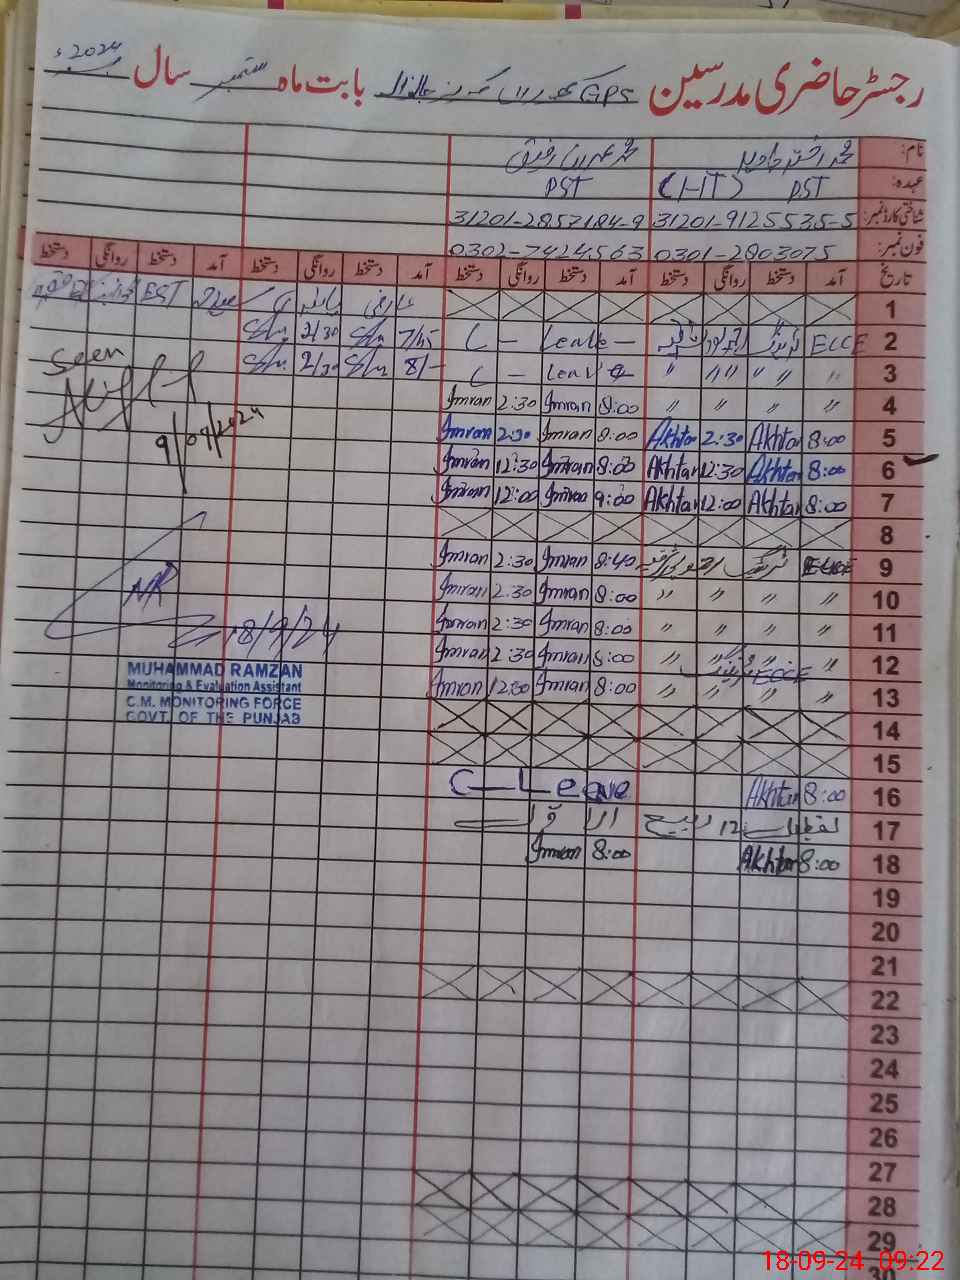 رجسٹر حاضری مدرسین GPS بابت ماہ ستمبر سال 2024ء
نام:
عہدہ: PST (HT) PST
شناختی کارڈ نمبر: 31201-9125535-5 31201-2857184-9
فون نمبر: 0301-2803075 0302-7424563
تاریخ آمد دستخط روانگی دستخط آمد دستخط روانگی دستخط آمد دستخط روانگی دستخط آمد دستخط روانگی دستخط
1 عارضی EST
2 ECCE ٹریننگ C - Leave - 7/45 2/30
3 " " " " " C - Leave 8/- 2/30
4 " " " " 8:00 Imran 2:30 Imran
Seen
9/09/2024
5 8:00 Akhtar 2:30 Akhtar 8:00 Imran 2:30 Imran
6 8:00 Akhtar 12:30 Akhtar 8:00 Imran 12:30 Imran
7 8:00 Akhtar 12:00 Akhtar 9:00 Imran 12:00 Imran
8
9 ECCE ٹریننگ 8:40 Imran 2:30 Imran
10 " " " " 8:00 Imran 2:30 Imran
11 " " " " 8:00 Imran 2:30 Imran
18/9/24
12 " " " " 8:00 Imran 2:30 Imran
ECCE ٹریننگ
13 " " " " 8:00 Imran 12:30 Imran
MUHAMMAD RAMZAN
Monitoring & Evaluation Assistant
C.M. MONITORING FORCE
GOVT. OF THE PUNJAB
14
15
16 8:00 Akhtar C-Leave
17 تعطیلات 12 ربیع الاول
18 8:00 Akhtar 8:00 Imran
19
20
21
22
23
24
25
26
27
28
29
30
18-09-24 09:22